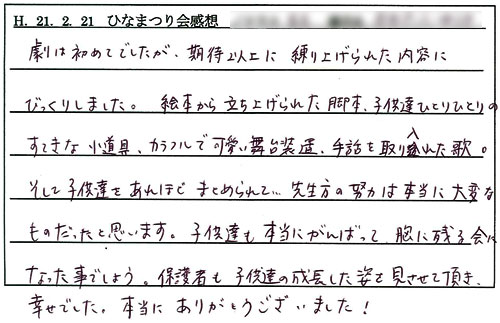 H. 21. 2. 21 ひなまつり会感想
劇は初めてでしたが、期待以上に 練り上げられた内容に
びっくりしました。 絵本から立ち上げられた脚本、子供達ひとりひとりの
すてきな小道具、カラフルで可愛い舞台装置、手話を取り入れた歌。
そして子供達をあれほど まとめられて… 先生方の努力は本当に大変な
ものだったと思います。子供達も本当にがんばって 胸に残る会に
なった事でしょう。保護者も 子供達の成長した姿を見させて頂き、
幸せでした。 本当に ありがとうございました！